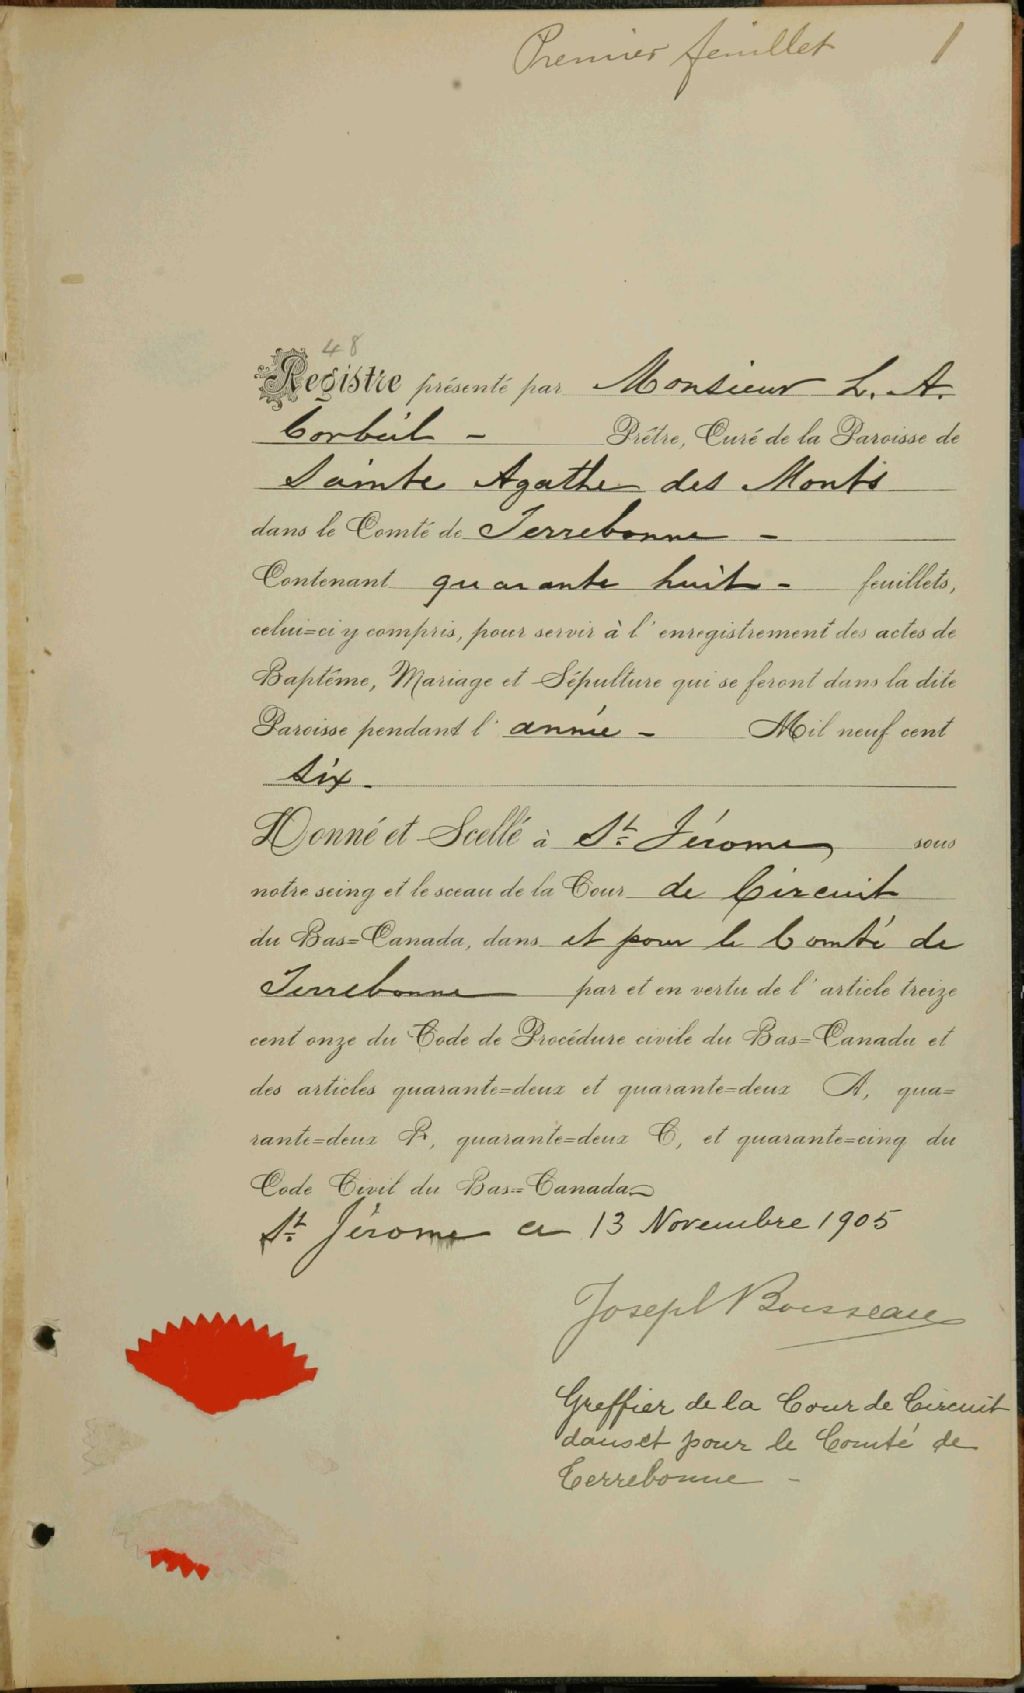 Premier feuillet 1
48
Registre présenté par Monsieur L. A.
Corbeil - Prêtre, Curé de la Paroisse de
Sainte Agathe des Monts
dans le Comté de Terrebonne -
Contenant quarante huit - feuillets,
celui=ci y compris, pour servir à l'enregistrement des actes de
Baptême, Mariage et Sépulture qui se feront dans la dite
Paroisse pendant l'année - Mil neuf cent
six -
Donné et Scellé à St. Jérome sous
notre seing et le sceau de la Cour de Circuit
du Bas=Canada, dans et pour le Comté de
Terrebonne par et en vertu de l'article treize
cent onze du Code de Procédure civile du Bas=Canada et
des articles quarante=deux et quarante=deux A, qua=
rante=deux B, quarante=deux C, et quarante=cinq du
Code Civil du Bas=Canada
St. Jérome ce 13 Novembre 1905
Joseph Boisseau
Greffier de la Cour de Circuit
dans et pour le Comté de
Terrebonne -